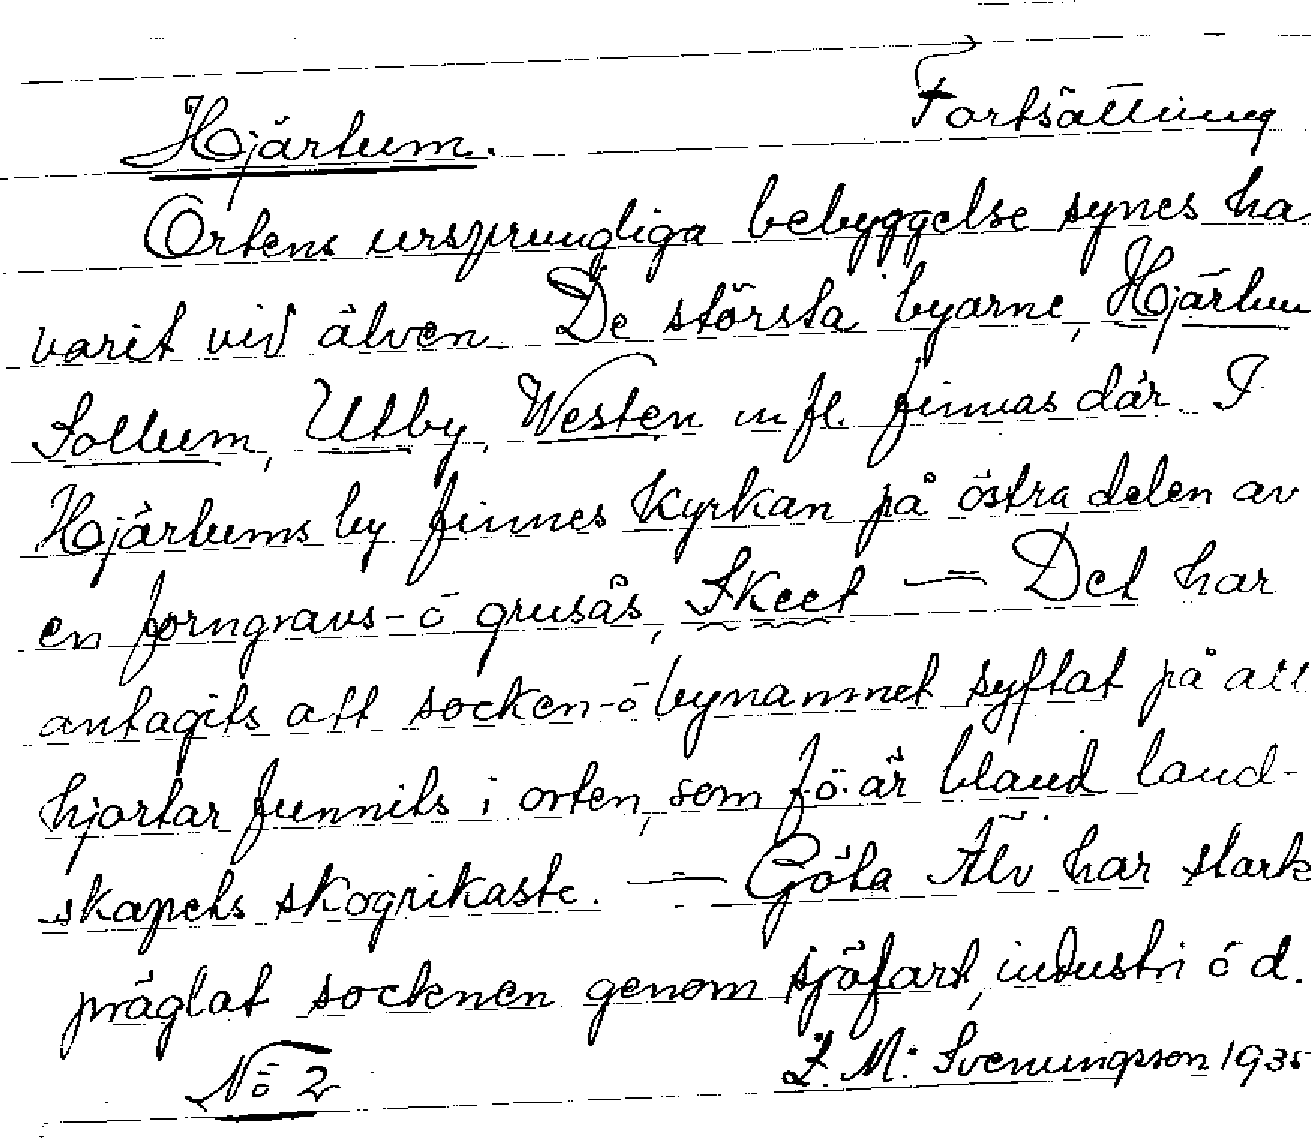 Hjärtum. Fortsättning
Ortens ursprungliga bebyggelse synes ha
varit vid älven De största byarne, Hjärtum
Sollum, Utby, Westen m fl. finnas där I
Hjärtums by finnes Kyrkan på östra delen av
en forngravs- o grusås, Skeet — Det har
antagits att socken- o bynamnet syftat på att
hjortar funnits i orten, som f.ö. är bland land-
skapets skogrikaste. — Göta Älv har stark
präglat socknen genom sjöfart, industri o d.
No 2 L. M. Svenungsson 1935